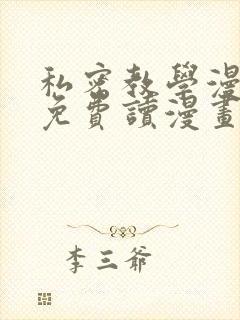 私密教學漫
免費讀漫畫
李三爺